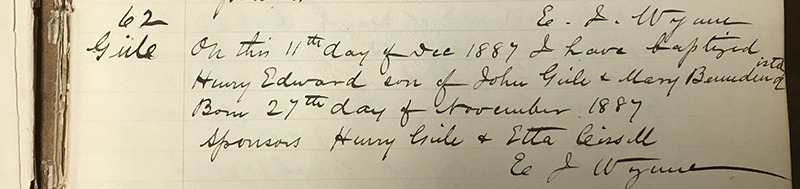 62
E. J. Wynne
Giile
On this 11th day of Dec 1887 I have baptized
Henry Edward son of John Giile & Mary
Born 27th day of November 1887
Sponsors Henry Giile & Etta Cissell
E J Wynne